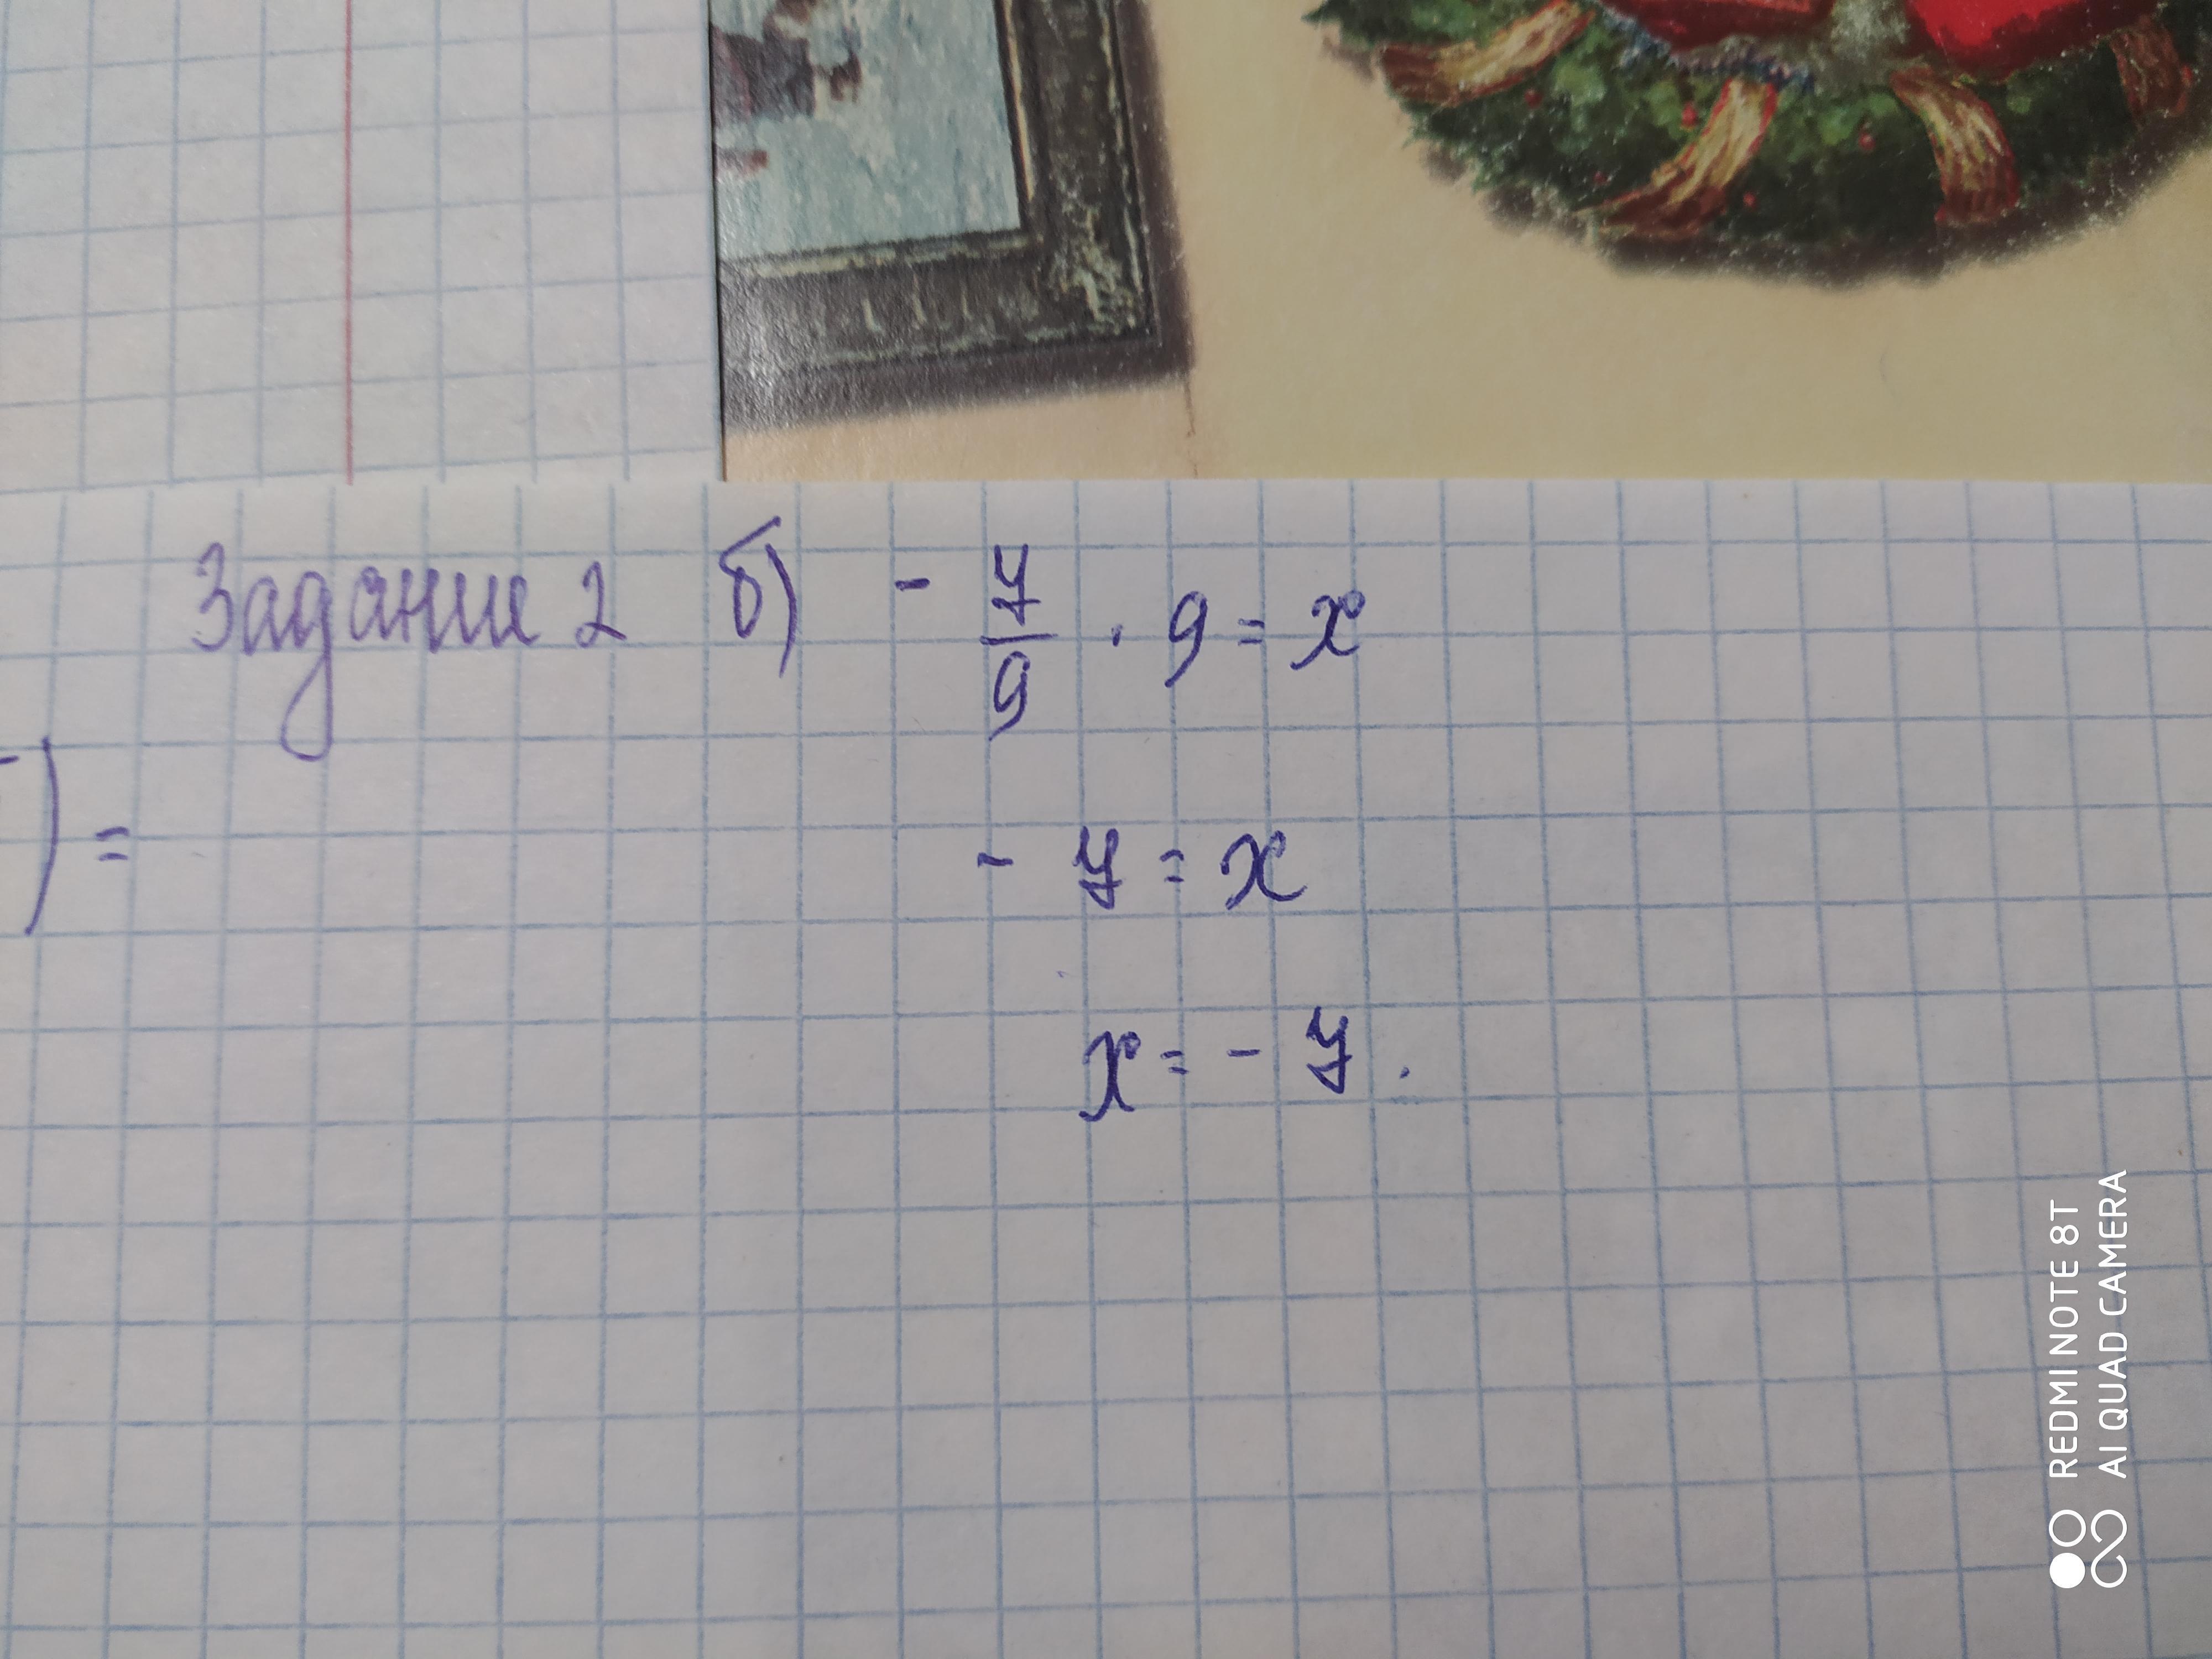 Задание 2 б) - 7/9 · 9 = x
) =
- 7 = x
x = - 7 .
REDMI NOTE 8T
AI QUAD CAMERA